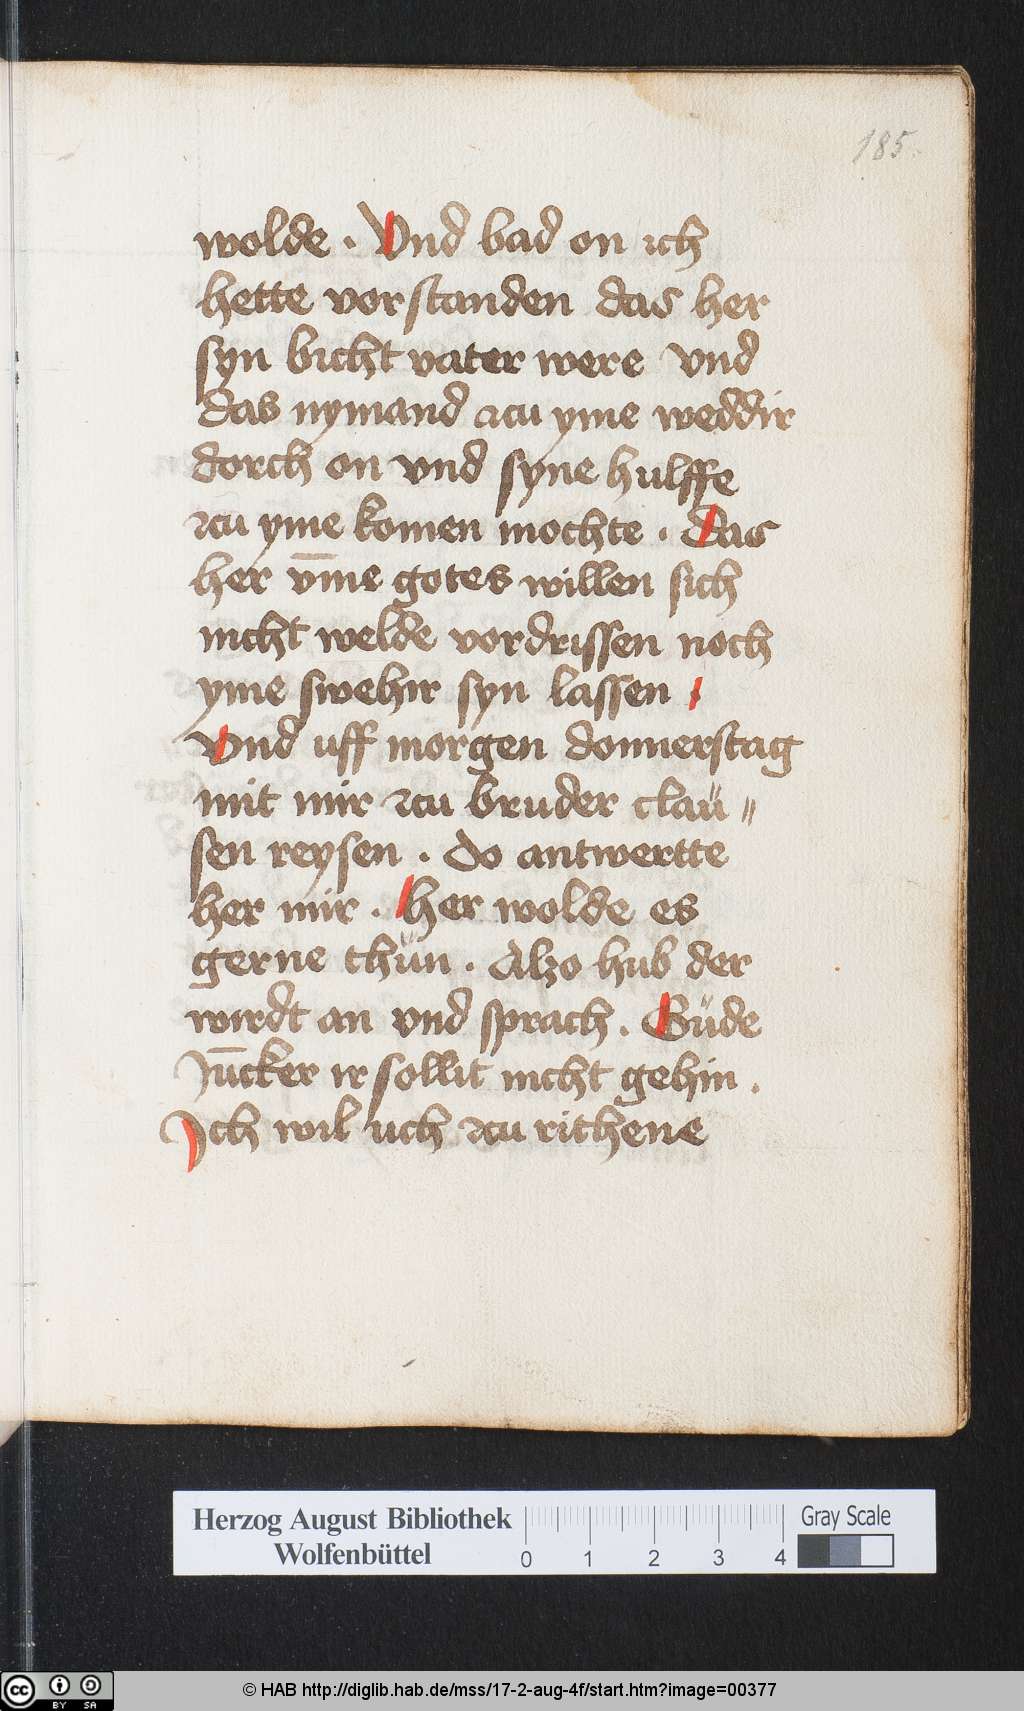 185.
wolde . Vnd bad on ich
hette vorstanden das her
syn bicht vater were vnd
das nymand zcu yme weddir
dorch on vnd syne hulffe
zcu yme komen mochte . Das
her vm̄e gotes willen sich
nicht welde vordrissen noch
yme swehir syn lassen .
Vnd uff morgen donnerstag
mit mir zcu bruder claü〃
sen reysen . Do antwertte
her mir . her wolde es
gerne thün . Alzo hub der
wirdt an vnd sprach . Güde
Jūcker ir sollit nicht gehin .
Ich wil uch zcu rithene
Herzog August Bibliothek
Wolfenbüttel
0 1 2 3 4
Gray Scale
cc BY SA
© HAB http://diglib.hab.de/mss/17-2-aug-4f/start.htm?image=00377